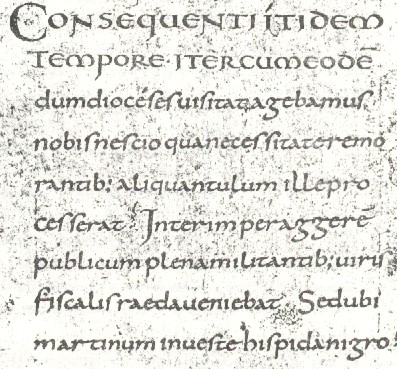 CONSEQUENTI ITIDEM
TEMPORE· ITER CUM EODĒ
dum dioceses uisitat agebamus,
nobis nescio qua necessitate remo
rantib; aliquantulum ille pro
cesserat· Interim per aggerē
publicum plena militantib; uiris
fiscalis raeda ueniebat· Sed ubi
martinum in ueste hispida nigro